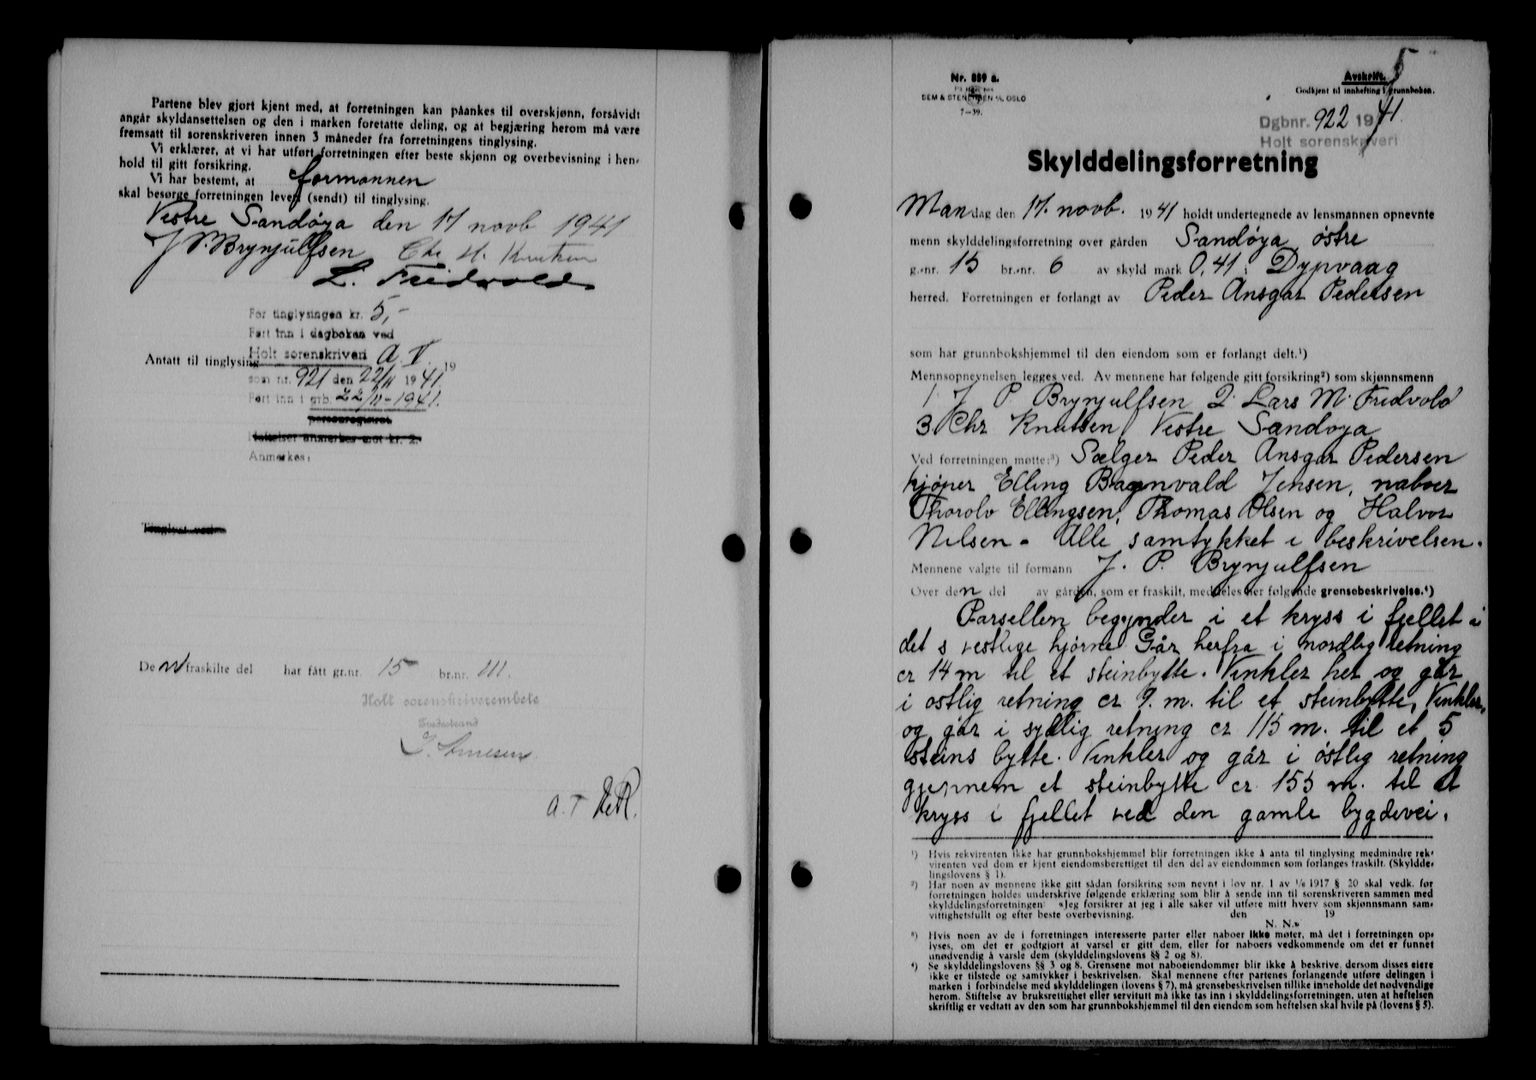 Partene blev gjort kjent med, at forretningen kan påankes til overskjønn, forsåvidt
angår skyldansettelsen og den i marken foretatte deling, og at begjæring herom må være
fremsatt til sorenskriveren innen 3 måneder fra forretningens tinglysing.
Vi erklærer, at vi har utført forretningen efter beste skjønn og overbevisning i hen-
hold til gitt forsikring.
Vi har bestemt, at formannen
skal besørge forretningen levert (sendt) til tinglysing.
Vestre Sandøya den 17 novb 1941
J P. Brynjulfsen Chr. H. Knutsen
L. Fredvold
For tinglysingen kr. 5,-
Ført inn i dagboken ved
Holt sorenskriveri A. V.
Antatt til tinglysing 19
som nr. 921 den 22/11 1941.
Ført inn i grb. 22/11-1941.
personregistret
Anmerkes:
Tinglyst ved
Den fraskilte del har fått gr.nr. 15 br.nr. 111.
Holt sorenskriverembete
Tvedestrand
a. T
Nr. 889 a.
SEM & STENERSEN A/S, OSLO
7-39.
5
Avskrift.
Godkjent til innhefting i grunnboken.
Dgbnr. 922 1941.
Holt sorenskriveri
Skylddelingsforretning
Mandag den 17. novb. 1941 holdt undertegnede av lensmannen opnevnte
menn skylddelingsforretning over gården Sandøya østre
g.-nr. 15 br.-nr. 6 av skyld mark 0,41 i Dypvaag
herred. Forretningen er forlangt av Peder Ansgar Pedersen
som har grunnbokshjemmel til den eiendom som er forlangt delt.¹)
Mennsopnevnelsen legges ved. Av mennene har følgende gitt forsikring²) som skjønnsmenn
1. J P Brynjulfsen 2. Lars M. Fredvold
3 Chr Knutsen Vestre Sandøya
Ved forretningen møtte:³) Sælger Peder Ansgar Pedersen
kjøper Elling Bagnvald Jensen, naboer
Thorolv Ellingsen, Thomas Olsen og Halvor
Nilsen - Alle samtykket i beskrivelsen.
Mennene valgte til formann J. P. Brynjulfsen
Over den del av gården, som er fraskilt, meddeles her følgende grensebeskrivelse.⁴)
Parsellen begynder i et kryss i fjellet i
det s vestlige hjørne Går herfra i nordlig retning
cr 14 m til et steinbytte. Vinkler her og går
i østlig retning cr 9. m. til et steinbytte, Vinkler,
og går i sydlig retning cr 115 m. til et 5
steins bytte. Vinkler og går i østlig retning
gjennem et steinbytte cr 155 m. til et
kryss i fjellet ved den gamle bygdevei.
¹) Hvis rekvirenten ikke har grunnbokshjemmel blir forretningen ikke å anta til tinglysing medmindre rek-
virenten ved dom er kjent eiendomsberettiget til den del av eiendommen som forlanges fraskilt. (Skyldde-
lingslovens § 1).
²) Har noen av mennene ikke gitt sådan forsikring som nevnt i lov nr. 1 av 1/6 1917 § 20 skal vedk. før
forretningen holdes underskrive følgende erklæring som blir å sende inn til sorenskriveren sammen med
skylddelingsforretningen: «Jeg forsikrer at jeg i alle saker vil utføre mitt hverv som skjønnsmann sam-
vittighetsfullt og efter beste overbevisning. den 19
N. N.»
³) Hvis noen av de i forretningen interesserte parter eller naboer ikke møter, må det i forretningen op-
lyses, om det er godtgjort at varsel er gitt dem, eller for naboers vedkommende om det er funnet
unødvendig å varsle dem (skylddelingslovens §§ 2 og 8).
⁴) Se skylddelingslovens §§ 3 og 8. Grensene mot naboeiendommer blir ikke å beskrive, dersom disses eiere
ikke er tilstede og samtykker i beskrivelsen. Skal mennene efter partenes forlangende utføre delingen i
marken i forbindelse med skylddelingen (lovens § 7), må grensebeskrivelsen tillike inneholde det nødvendige
herom. Stiftelse av bruksrettighet eller servitutt må ikke tas inn i skylddelingsforretningen, uten at heftelsen
skriftlig er vedtatt av den som har grunnbokshjemmel til den eiendom som heftelsen skal hvile på (lovens § 5).